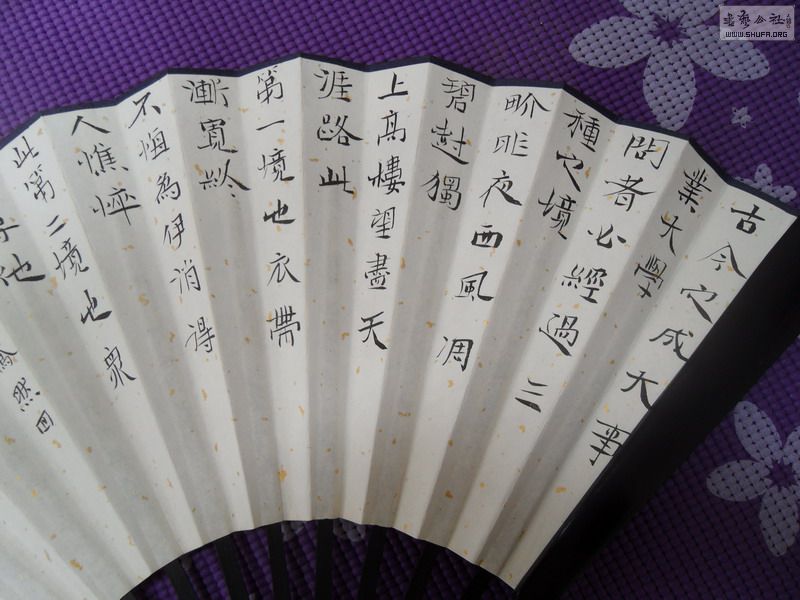 古今之成大事
業大學
問者必經過三
種之境
畍昨夜西風凋
碧樹獨
上高樓望盡天
涯路此
第一境也衣帶
漸寬終
不悔為伊消得
人憔悴
此第二境也眾
他
然回
書藝公社
WWW.SHUFA.ORG